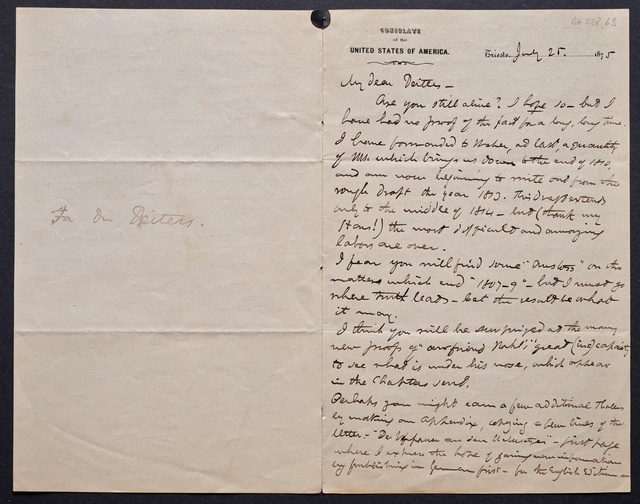 CONSULATE
of the
UNITED STATES OF AMERICA.
Trieste, July 25. 1875
My dear Deiters –
Are you still alive? I hope so – but I
have had no proof of the fact for a long, long time.
I have forwarded to Weber, at last, a quantity
of MS. which brings us down to the end of 1810,
and am now beginning to write out from the
rough draft the year 1813. This draft extends
only to the middle of 1814 – but (thank my
Stars!) the most difficult and annoying
labors are over.
I fear you will find some "Anstoss" on the
matters which end "1807–9" – but I must go
where truth leads – let the result be what
it may.
I think you will be surprized at the many
new proofs of our friend Nohl's "great (in)capacity
to see what is under his nose, which appear
in the Chapters send.
Perhaps you might earn a few additional Thalers
by making an Appendix, copying a few lines of the
letter – "Der Verfasser an den Uebersetzer" – first page
where I express the hope of gaining new information
by publishing in German first – for the English Edition –
For Dr. Deiters.